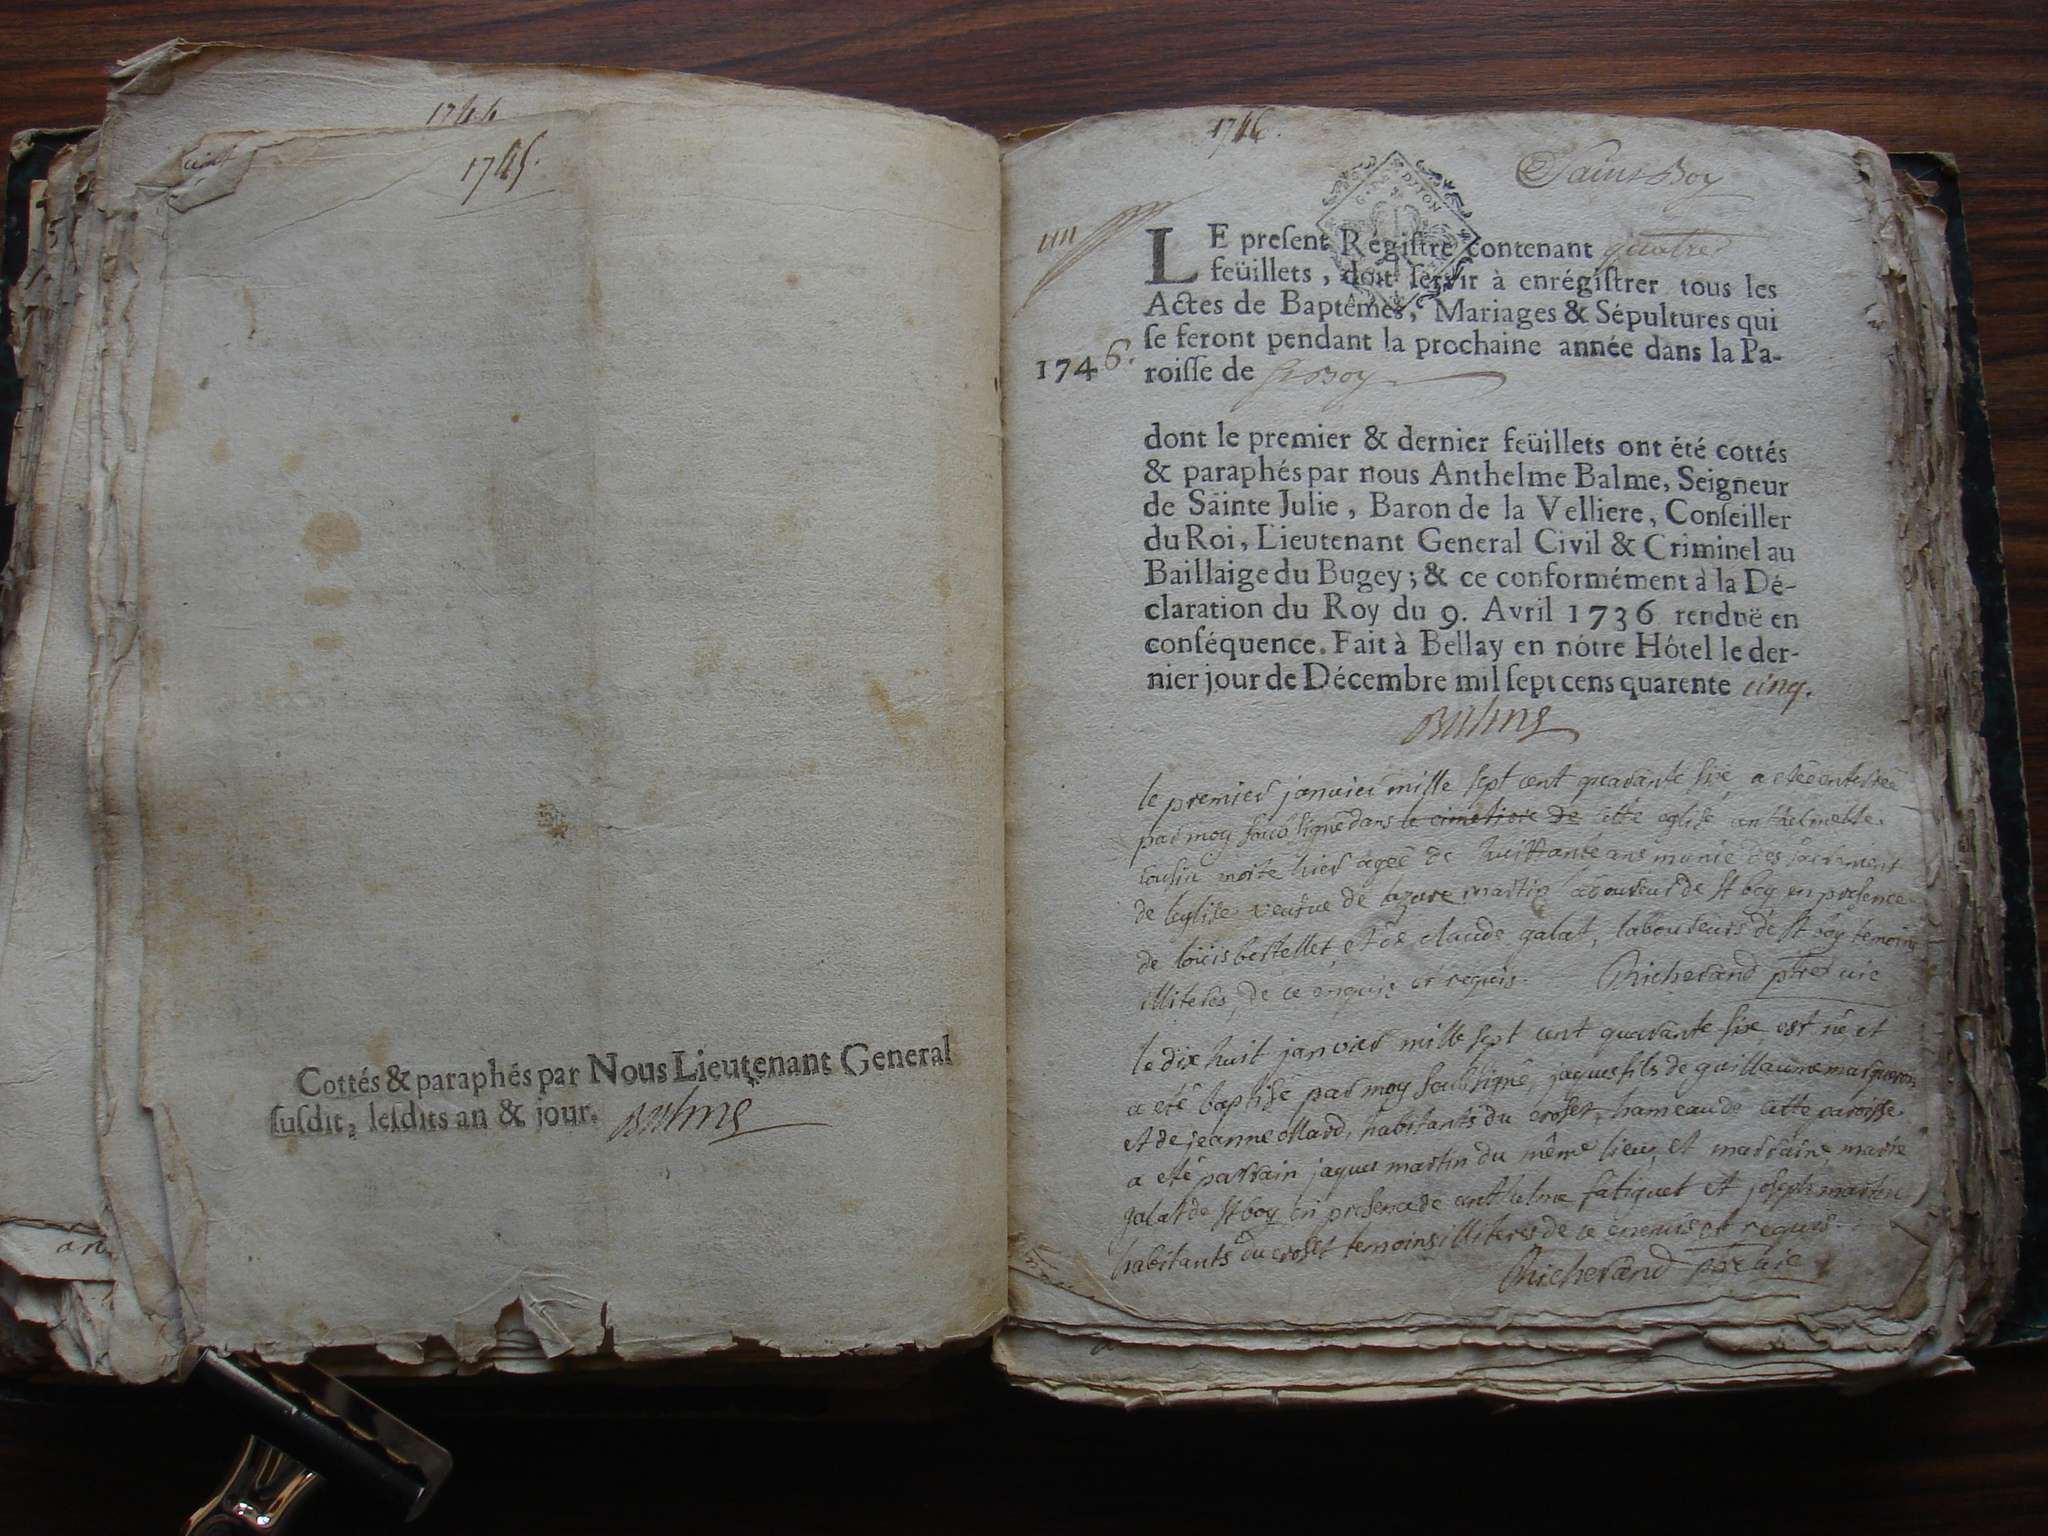 1744
1745.
Cottés & paraphés par Nous Lieutenant General
ſuſdit, leſdits an & jour. Balme
1746.
Saint Boy
IIII
LE preſent Regiſtre contenant quatre
feüillets, doit ſervir à enrégiſtrer tous les
Actes de Baptêmes, Mariages & Sépultures qui
ſe feront pendant la prochaine année dans la Pa-
1746.
roiſſe de St Boy
dont le premier & dernier feüillets ont été cottés
& paraphés par nous Anthelme Balme, Seigneur
de Sainte Julie, Baron de la Velliere, Conſeiller
du Roi, Lieutenant General Civil & Criminel au
Baillaige du Bugey; & ce conformément à la Dé-
claration du Roy du 9. Avril 1736 renduë en
conſéquence. Fait à Bellay en nôtre Hôtel le der-
nier jour de Décembre mil ſept cens quarente cinq.
Balme
le premier janvier mille sept cent quarante six, a étée enterrée
par moy soub signé dans le cimetiere de cette eglise anthelmette
cousin morte hier agée de huittante ans munie des sacrement
de leglise veufue de lazare martin laboureur de st boy en presence
de loüis bertellet et de claude galat, laboureurs de st boy temoins
illiterés, de ce enquis et requis. Richerand ptre curé
le dix huit janvier mille sept cent quarante six est né et
a été baptisé par moy soubsigné, jaques fils de guillaume
et de jeanne ollard, habitants du croset, hameau de cette paroisse
a été parrain jaques martin du même lieu, et marraine marie
galat de st boy en presence de anthelme fatiguet et joseph martin
habitants du croset temoins illiterés de ce enquis et requis.
Richerand ptre curé